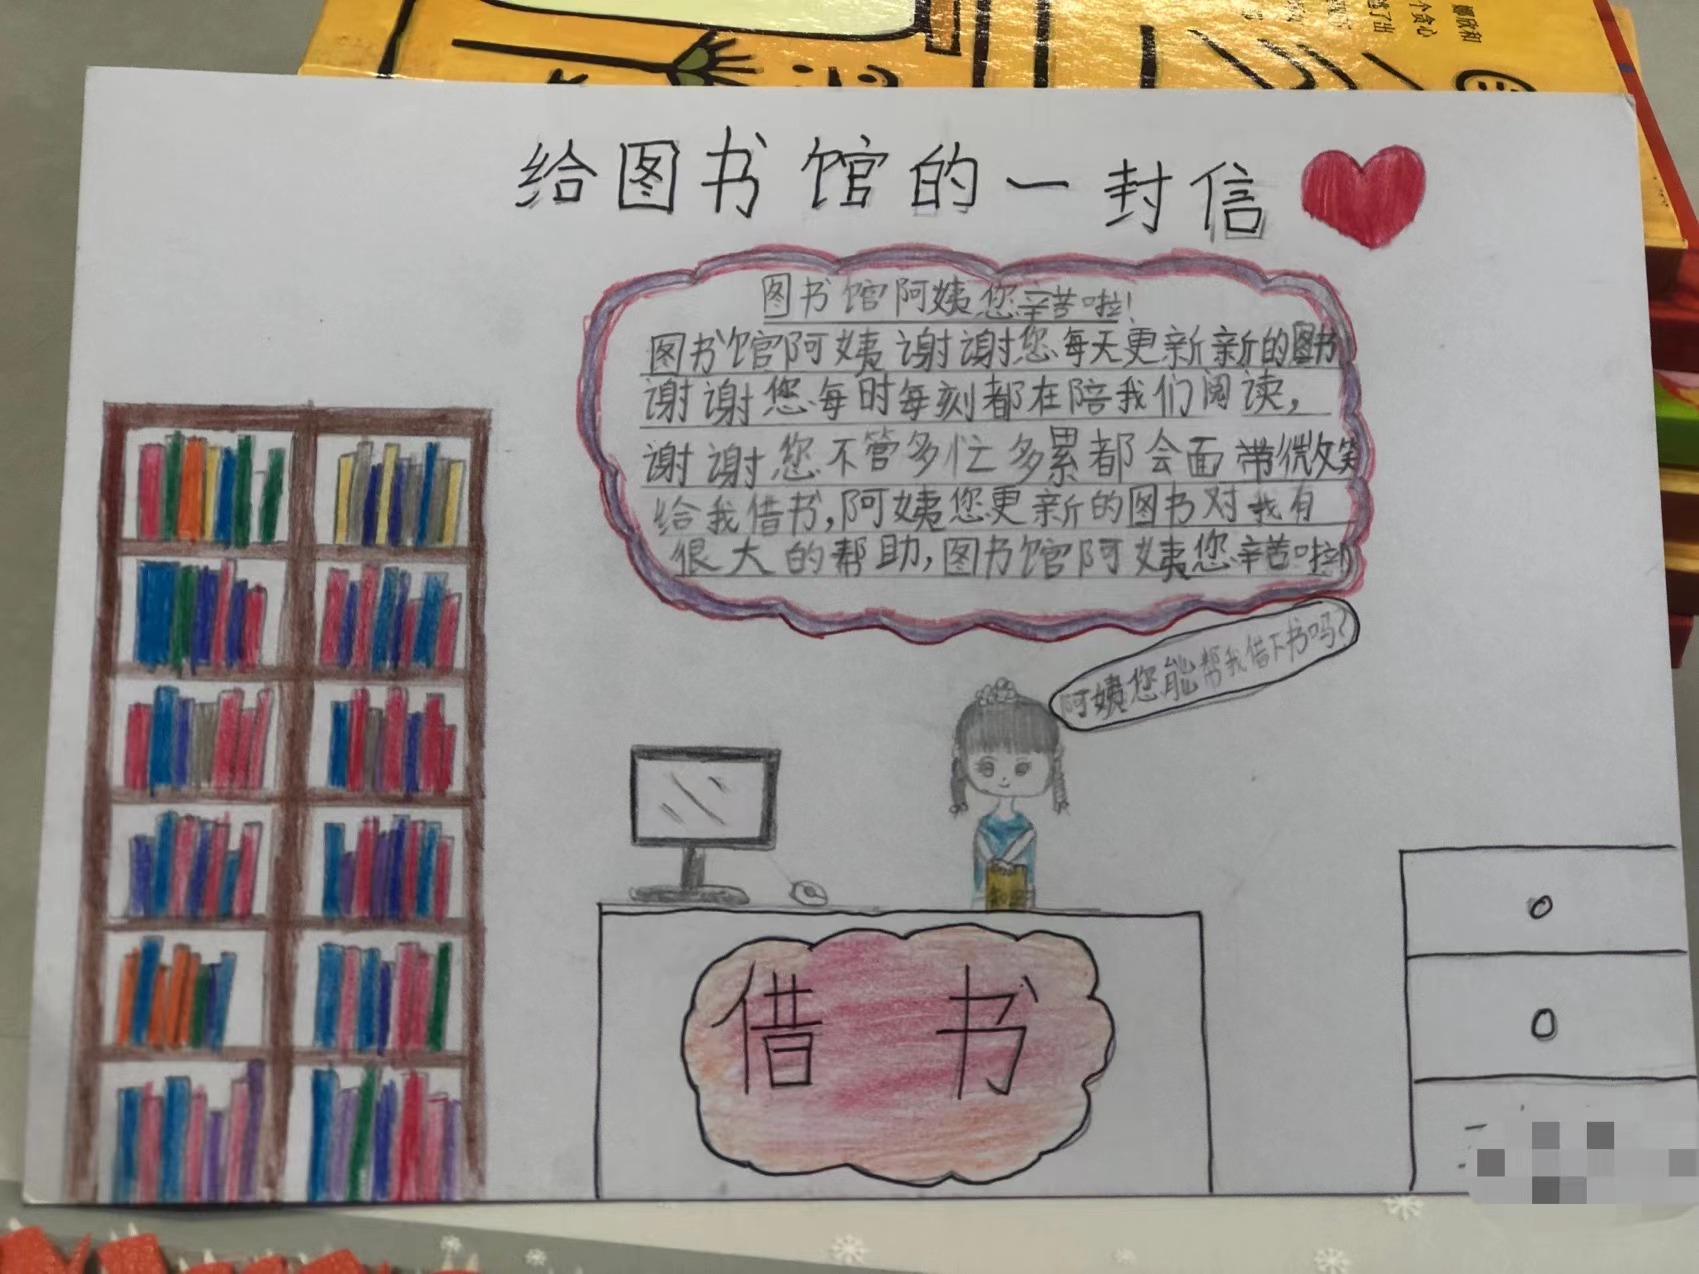 给图书馆的一封信
图书馆阿姨您辛苦啦!
图书馆阿姨谢谢您每天更新新的图书
谢谢您每时每刻都在陪我们阅读,
谢谢您不管多忙多累都会面带微笑
给我借书,阿姨您更新的图书对我有
很大的帮助,图书馆阿姨您辛苦啦!
阿姨您能帮我借下书吗?
借书